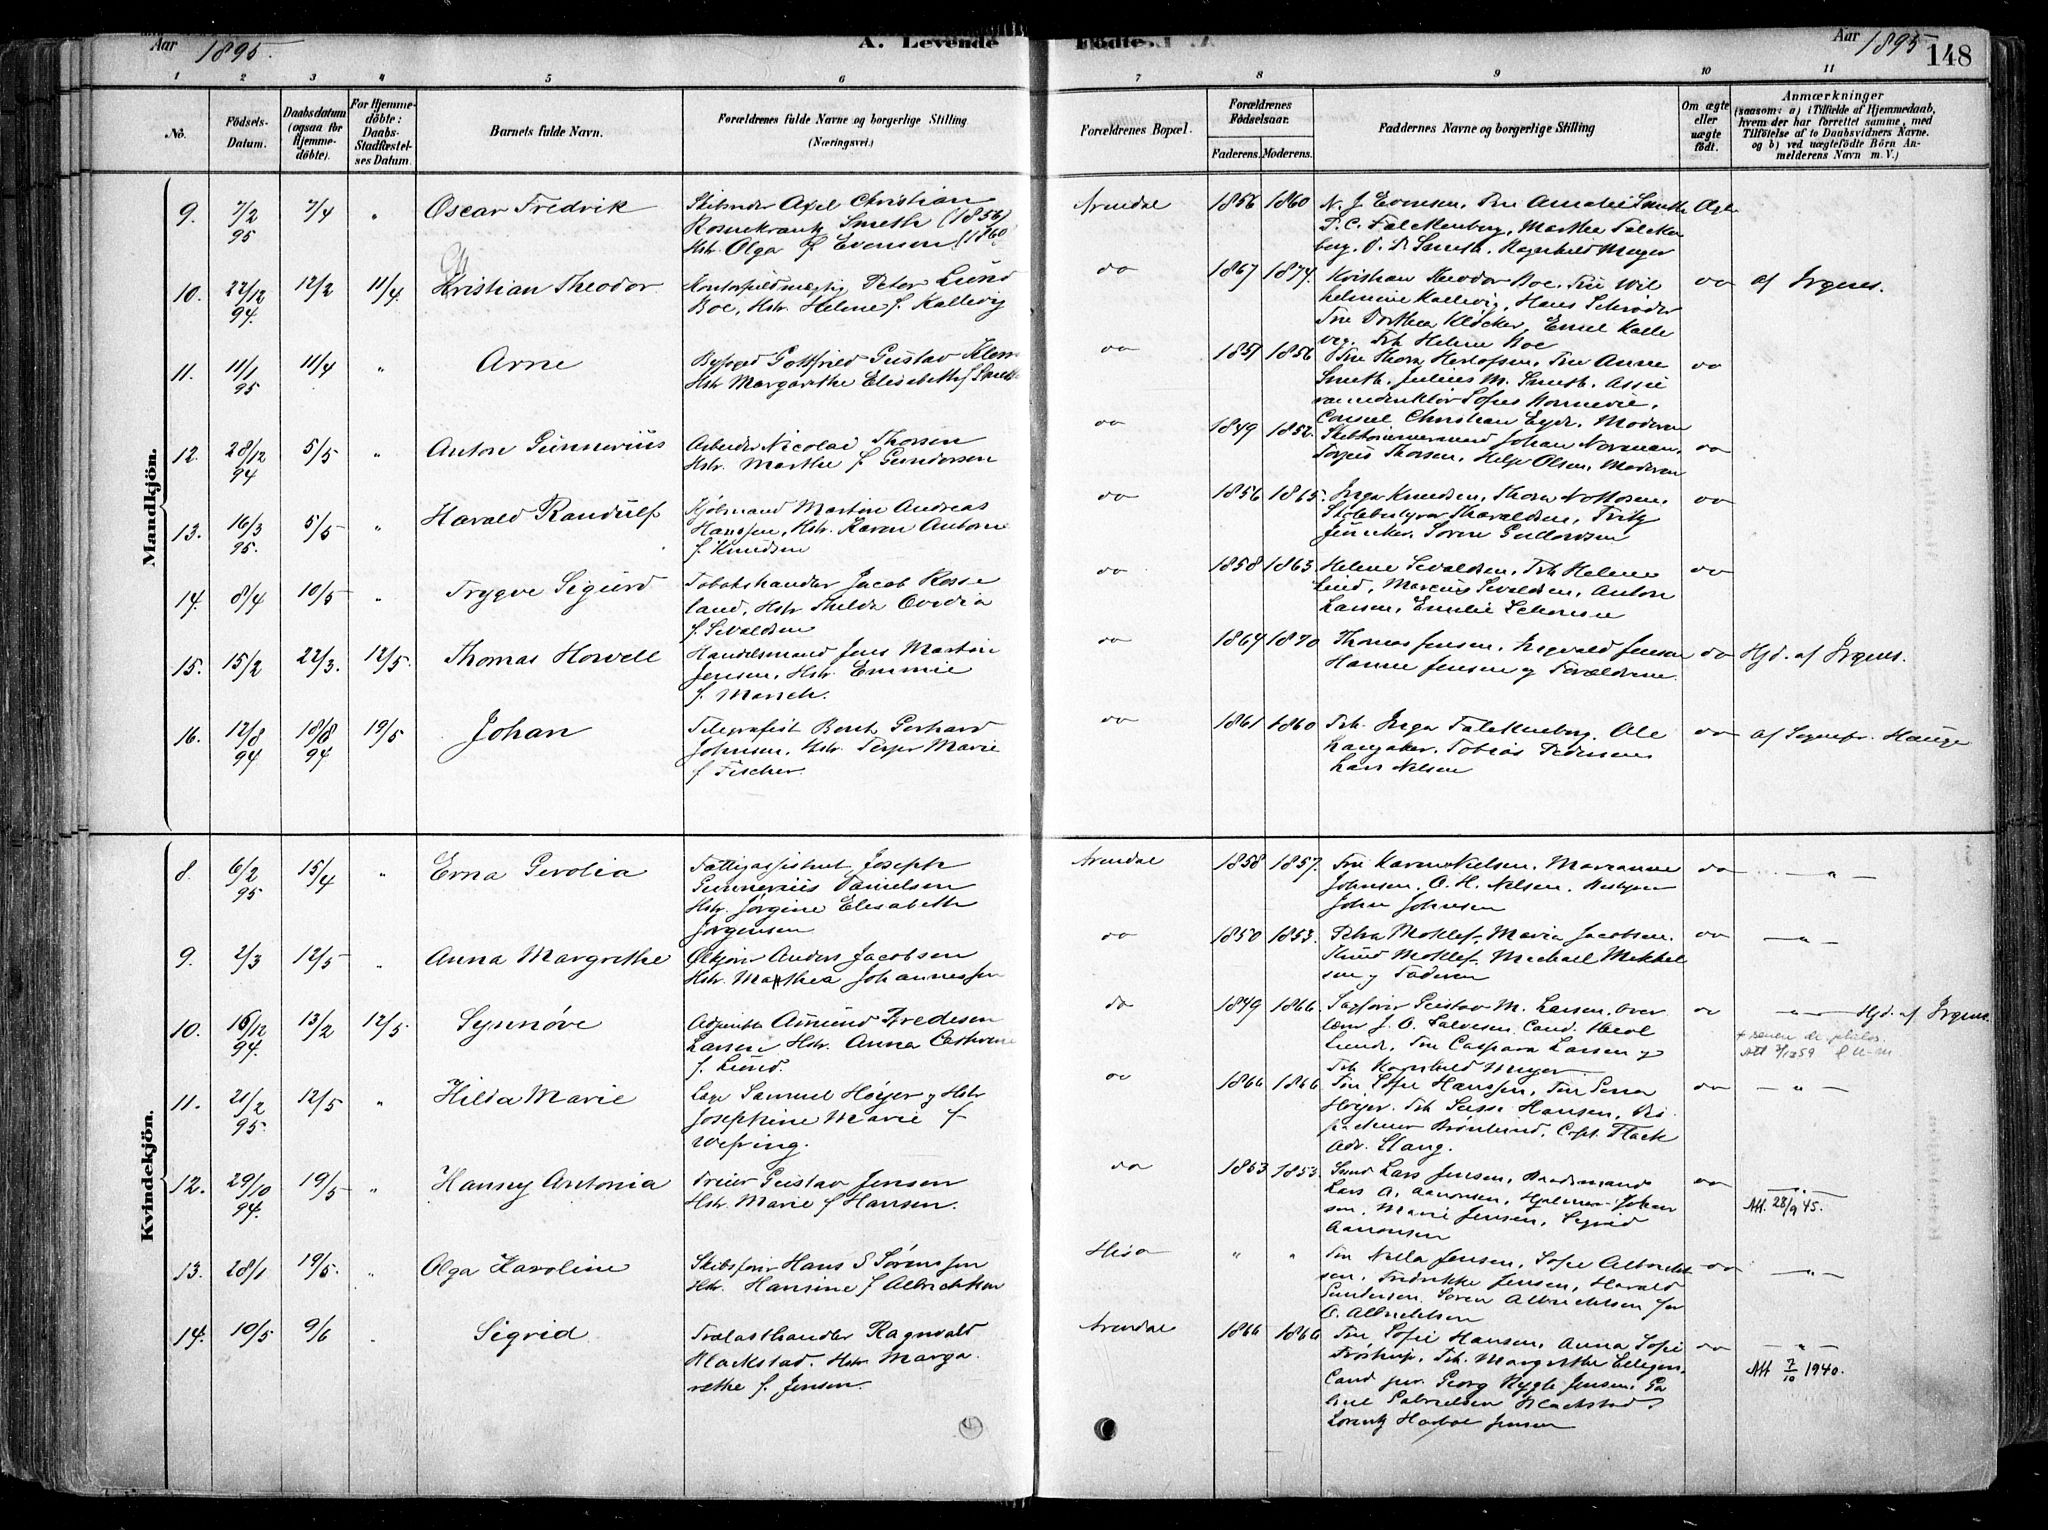 Aar 1895. A. Levende Födte. Aar 1895 148
1 2 3 4 5 6 7 8 9 10 11
No. Födsels-Datum. Daabsdatum (ogsaa for Hjemmedöbte). For Hjemmedöbte: Daabs-Stadfæstelses Datum. Barnets fulde Navn. Forældrenes fulde Navne og borgerlige Stilling (Næringsvei.) Forældrenes Bopæl. Forældrenes Födselsaar. Faderens. Moderens. Faddernes Navne og borgerlige Stilling Om ægte eller uægte födt. Anmærkninger (saasom: a) i Tilfælde af Hjemmedaab, hvem der har forrettet samme, med Tilföielse af to Daabsvidners Navne. og b) ved uægtefödte Börn Anmelderens Navn m. V.)
Mandkjön.
9. 7/2 95 7/4 " Oscar Fredrik
Axel Christian
Rosenkrantz Smith (1856)
Hstr Olga f Evensen (1860)
Arendal 1856 1860 N. J. Evensen, Fru Amalie Smith Ægte
T. C. Falckenberg, Marthe Falcken
berg, Ragnhild Meyer
10. 22/12 94. 12/2 11/4 Kristian Theodor
Kontorfuldmægtig Peter Lund
Boe, Hstr. Helene f. Kallevig
do 1867 1874. Kristian Theodor Boe, Fru Wil
helmine Kallevig, Hans Schrøder
Fru Dorthea Kløcker, Emil Kalle
vig, Frk Helene Boe
do af Irgens.
11. 11/1 95 11/4 " Arne
Byfoged Gottfried Gustav Klem
Hstr Margarethe Elisabeth f Smith
do 1851 1856 Fru Thora Herlofsen, Fru Anne
Smith, Julius M. Smith, Assu
randeurdirektør
Consul Christian Eyde, Moderen
do
12. 28/12 94 5/5 " Anton Gunnerius
Arbeider Nicolai Thorsen
Hstr. Marthe f Gundersen
do 1849 1852. Skibtømmermand Johan Norman,
Torjus Thorsen, Helje Olsen, Moderen
do
13. 16/3 95. 5/5 " Harald Randulf
Kjøbmand Martin Andreas
Hanssen, Hstr. Karen Antonie
f. Knudsen
do 1856 1865. Inga Knudsen, Thora
Thoraldsen, Fritz
Juncker, Søren Gullovdsen
do
14. 8/4 10/5 " Trygve Sigurd
Tobakshandler Jacob Rosse
land, Hstr Thilda Ovedia
f. Sevaldsen
do 1858 1863. Helene Sevaldsen, Frk Helene
Lind, Marcus Sevaldsen, Anton
Larsen, Emilie
do
15. 15/2 22/3. 12/5 Thomas Howell
Handelsmand Jens Martin
Jensen, Hstr. Emmie
f. March.
do 1864 1870 Thomas Jensen, Ingvald Jensen
Hanne Jensen og Forældrene
do Hjd. af Irgens.
16. 12/8 94 18/8 94 19/5 Johan
Telegrafist Bent Gerhard
Johnsen, Hstr Marie
f Fischer.
do 1861 1860 Frk. Inga Falckenberg, Ole
Langaker, Tobias Pedersen
Lars Nilsen
do af Sognepr. Hauge
Kvindekjön.
8. 6/2 95 15/4 " Erna Gerolia
Fattigassistent Joseph
Gunnerius Danielsen
Hstr. Jørgine Elisabeth
Jørgensen
Arendal 1858 1857. Fru Karen Nilsen, Marianne
Johnsen, O. H. Nilsen, Bestyrer
John Johnsen
do "
9. 2/3 12/5 " Anna Margrethe
Anders Jacobsen
Hstr. Mathea Johannessen
do 1850 1853. Petra Moklef, Maria Jacobsen.
Knud Moklef, Michael Mikkel
sen og Faderen
do "
10. 16/12 94. 13/2 12/5 Synnøve
Adjunkt Amund Bredesen
Larsen Hstr. Anna Cathrine
f. Lund.
do 1849 1866 Sagfører Gustav M. Larsen, Over
lærer J. O. Salvesen, Cand.
Lund, Fru Caspara Larsen og
Frk Ragnhild Unger
do " Hjd. af Irgens.
+ senere dr. philos.
11. 21/2 95. 12/5 " Hilda Marie
Læge Samuel Høyer og Hstr
Josephine Marie f
Wefring.
do 1866 1866 Fru Sofie Hanssen, Fru
Høyer. Frk Susse Hansen,
Brønlund, Capt. Flack
Adv. Stang.
do "
12. 29/10 94. 19/5 " Hansey Antonia
Gustav Jensen
Hstr. Marie f Hansen.
do 1853 1853. Lars Jensen, Brandmand
Lars A. Aanonsen, Hjalmar Johan
sen, Marie Jensen, Sigrid
Aanonsen
do " Att. 28/9 45.
13. 28/1 19/5. " Olga Karoline
Skibsfører Hans S Sørenssen
Hstr. Hansine f Albrechtsen
Hisø " " Fru Nilla Jensen, Sofie Albrecht
sen, Fredrikke Jensen, Harald
Gundersen. Søren Albrechtsen for
O. Albrechtsen
do "
14. 10/5 9/6 " Sigrid
Trælasthandler Ragnvald
Blackstad. Hstr. Marga
rethe f. Jensen.
Arendal 1866 1866 Fru Sofie Hansen, Anna Sofie
Trøstrup, Frk. Margrethe Ellefsen,
Cand jur. Georg Bygh Jensen, Ga
briel Gabrielsen Blackstad,
Lorentz Harboe Jensen
do " Att 7/10 1940.